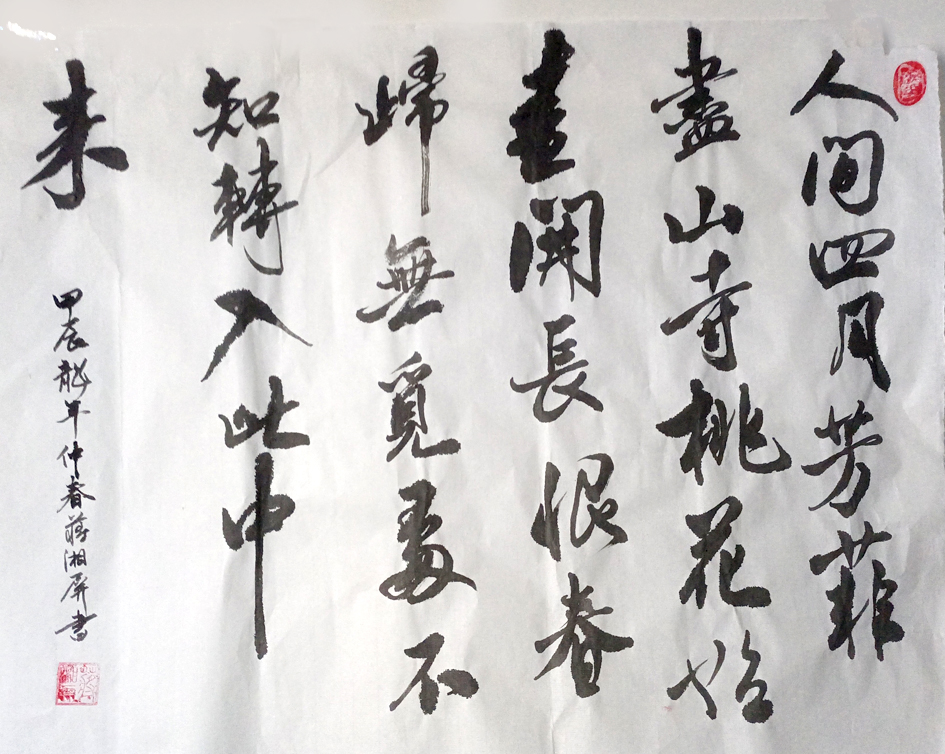 人間四月芳菲
盡山寺桃花始
盛開長恨春
歸無覓處不
知轉入此中
来
甲辰龍年仲春蔣湘屏書